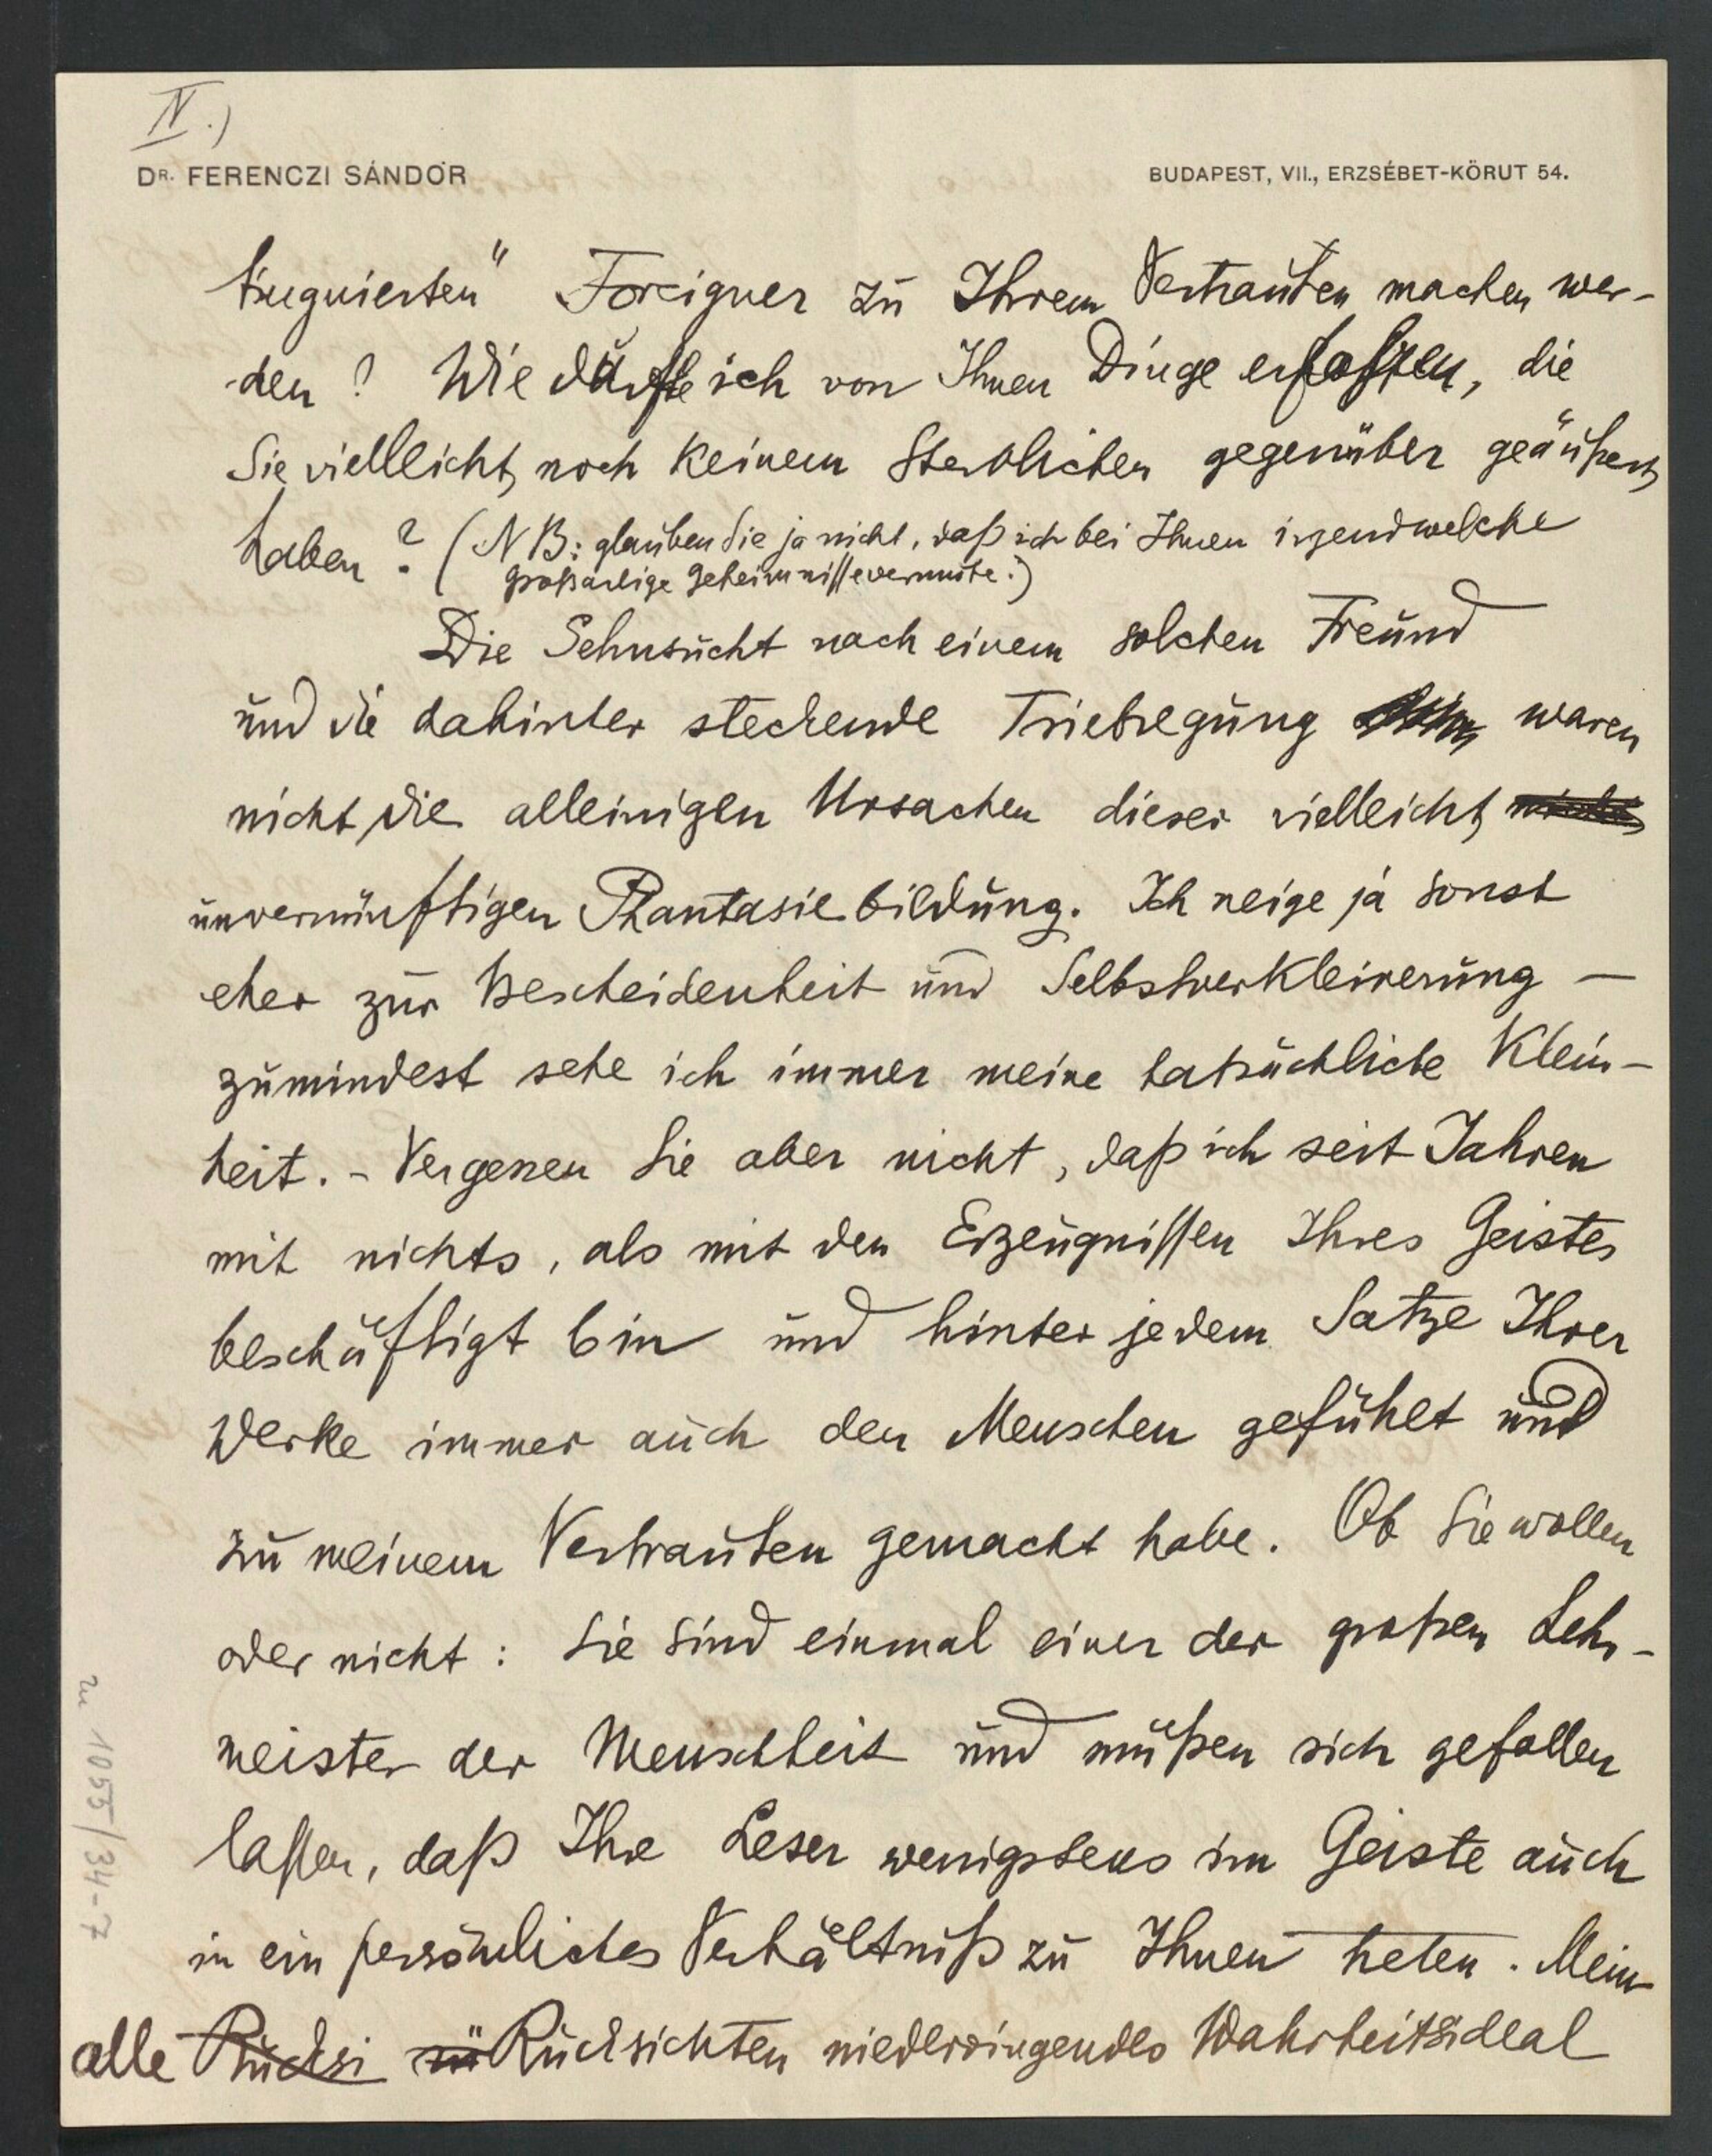 IV.)
DR. FERENCZI SÁNDOR
BUDAPEST, VII., ERZSÉBET-KÖRUT 54.
tinguierten" Foreigner zu Ihrem Vertrauten machen wer-
den? Wie dürfte ich von Ihnen Dinge erfahren, die
Sie vielleicht noch keinem Sterblichen gegenüber geäußert
haben? (NB: glauben Sie ja nicht, daß ich bei Ihnen irgendwelche
großartige Geheimnisse vermute.)
Die Sehnsucht nach einem solchen Freund
und die dahinter steckende Triebregung waren
nicht die alleinigen Ursachen dieser vielleicht nicht
unvernünftigen Phantasiebildung. Ich neige ja sonst
eher zur Bescheidenheit und Selbstverkleinerung —
zumindest sehe ich immer meine tatsächliche Klein-
heit. - Vergessen Sie aber nicht, daß ich seit Jahren
mit nichts, als mit den Erzeugnissen Ihres Geistes
beschäftigt bin und hinter jedem Satze Ihrer
Werke immer auch den Menschen gefühlt und
zu meinem Vertrauten gemacht habe. Ob Sie wollen
oder nicht: Sie sind einmal einer der großen Lehr-
meister der Menschheit und müßen sich gefallen
lassen, daß Ihre Leser wenigstens im Geiste auch
in ein persönliches Verhältniß zu Ihnen treten. Mein
alle Rücksi zu Rücksichten niederringendes Wahrheitsideal
zu 1055/34-7